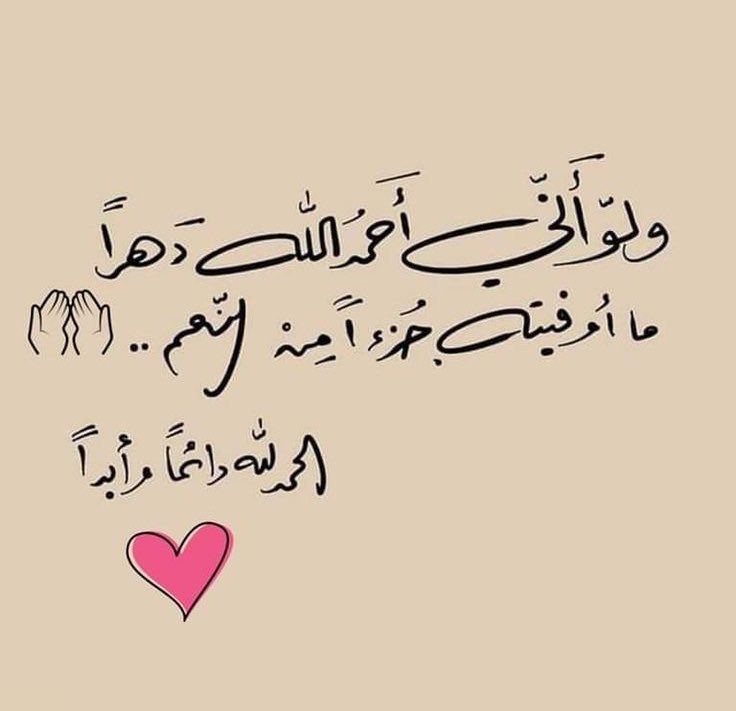 ولَوْ أَنّي أَحمَدُ الله دَهراً
ما أوفيته جُزءاً مِنْ النّعم ..
الحمد لله دائماً وأبداً